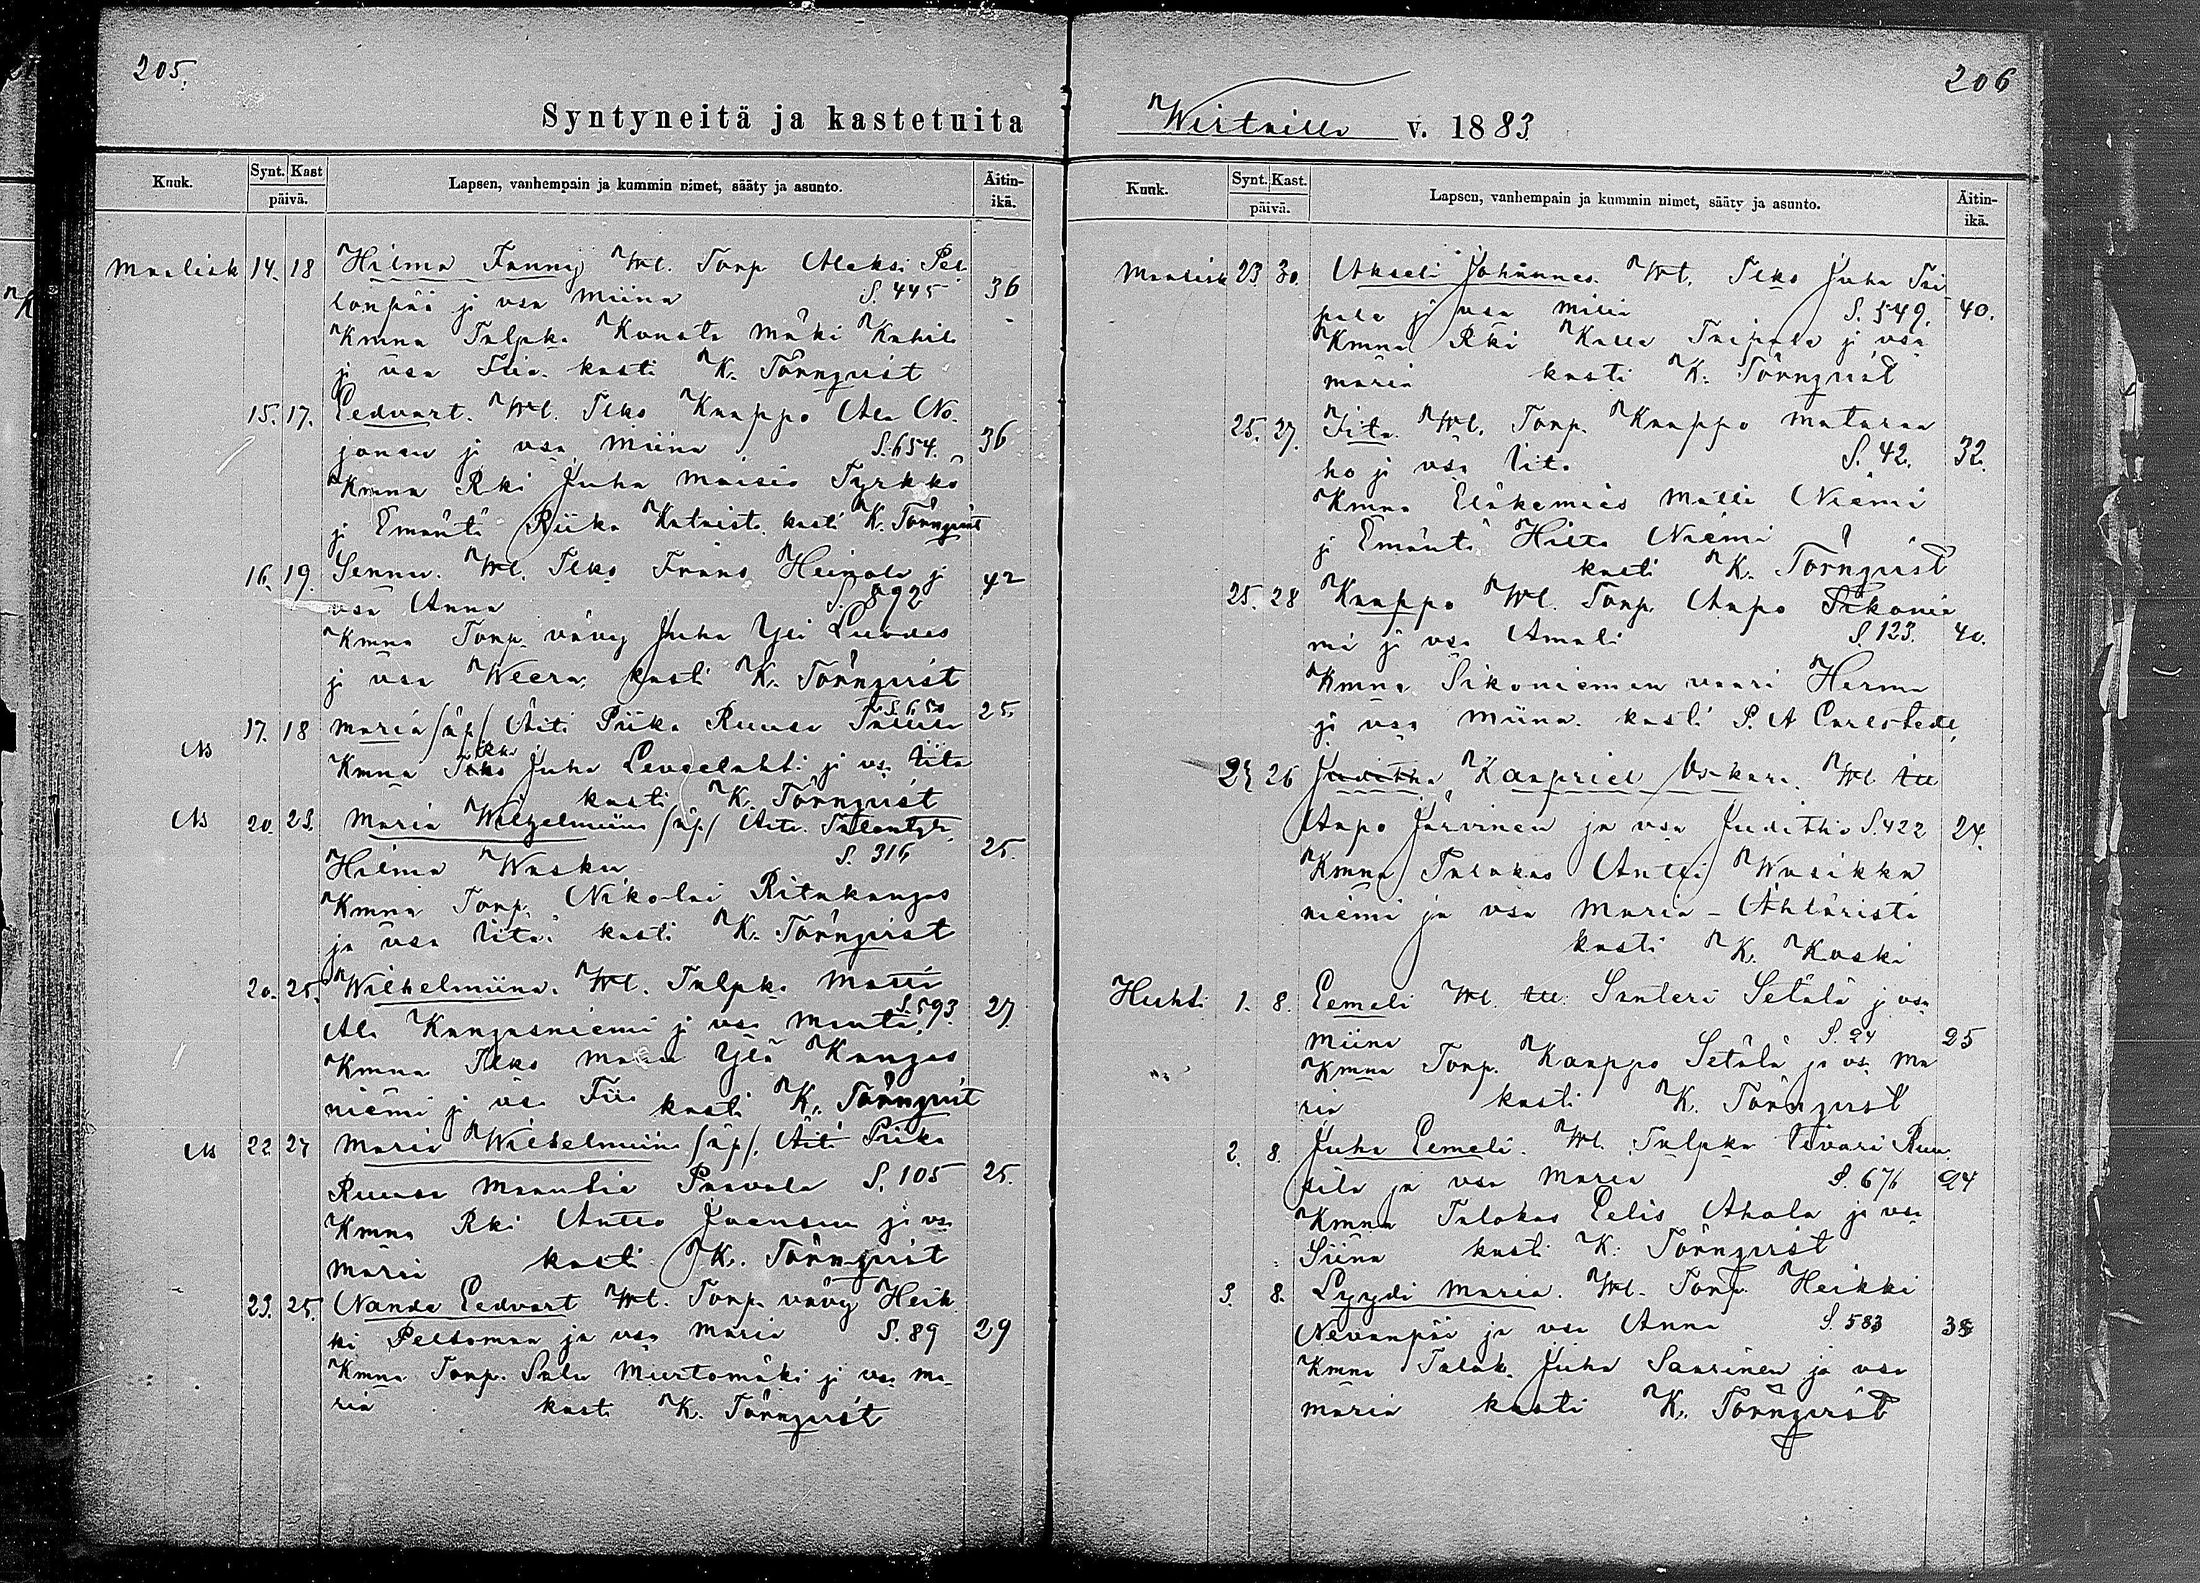 205.
Syntyneitä ja kastetuita
Kuuk.
Synt. Kast
päivä.
Lapsen, vanhempain ja kummin nimet, sääty ja asunto.
Äitin-
ikä.
Maalisk 14. 18 Hilma Fanny Wl. Torp Aleksi Pel
lonpää ja vsa Miina S. 445 36
Kmna Talpka Kunata Mäki Kahil
ja vsa Fia. kasti K. Törnqvist
15. 17. Eedvart. Wl. Ilko Kaappo Ala No
jonen ja vsa Miina S. 654. 36
Kmna Rki Juha Maisio Tyrkkö
ja Emäntä Riika Katrista kasti K. Törnqvist
16. 19. Sennu. Wl. Ilko Frans Heinola ja
vsa Anna S. 892 42
Kmna Torp. vävy Juha Yli Luodes
ja vsa Weera. kasti K. Törnqvist
S. 650
17. 18 Maria /äp/ Äiti Piika Ruusa 25.
Kmna Juha Leveelahti ja vsa Iita
kasti K. Törnqvist
20. 23. Maria Wilhelmiina /äp/ Äiti.
Hilma Wasku S. 316 25.
Kmna Torp. Nikolai Ritakangas
ja vsa Iita. kasti K. Törnqvist
20. 25. Wilhelmiina. Wl. Talpka Matti
Ala Kangasniemi ja vsa Manta S. 593. 27.
Kmna Ilko Ylä Kangas
niemi ja vsa Fia kasti K. Törnqvist
22 27 Maria Wilhelmiina /äp/. Äiti Piika
Ruusa Paavola S. 105 25.
Kmna Rki Antto Joensuu ja vsa
Maria kasti K. Törnqvist
23. 25. Nanda Eedvart Wl. Torp. vävy Heik
ki Peltomaa ja vsa Maria S. 89 29
Kmna Torp. Salu Murtomäki ja vsa Ma
ria kasti K. Törnqvist
206
Wirtailla v. 1883
Kuuk.
Synt. Kast.
päivä.
Lapsen, vanhempain ja kummin nimet, sääty ja asunto.
Äitin-
ikä.
Maalisk 23 30. Akseli Johannes. Wl. Ilko Juha Tai
pale ja vsa Milia S. 549. 40.
Kmna Rki Kalle Taipale ja vsa
Maria kasti K. Törnqvist
25. 27. Iita. Wl. Torp. Kaappo Mataraa
ho ja vsa Iita S. 42. 32.
Kmna Eläkemies Matti Niemi
ja Emäntä Hilta Niemi
kasti K. Törnqvist
25. 28 Kaappo Wl. Torp. Aapo Sikonie
mi ja vsa Amali S. 123. 40.
Kmna Sikoniemen vaari Herma
ja vsa Miina. kasti P. A Carlstedt
25 26 Juditha, Kaapriel Oskari. Wl
Aapo Järvinen ja vsa Juditha S. 422 24.
Kmna Talokas Antti Wasikka
niemi ja vsa Maria - Ähtäristä
kasti K. Koski
Huhti 1. 8. Eemeli Wl. Santeri Setälä ja vsa
Miina S. 24 25
Kmna Torp. Kaappo Setälä ja vsa Ma
ria kasti K. Törnqvist
2. 8. Juha Eemeli. Wl. Talpka Iivari Ruu
sila ja vsa Maria S. 676 24
Kmna Talokas Eelis Ahola ja vsa
Siina kasti K. Törnqvist
3. 8. Lyydi Maria. Wl. Torp. Heikki
Nevanpää ja vsa Anna S. 583 38
Kmna Talok. Juha Saarinen ja vsa
Maria kasti K. Törnqvist